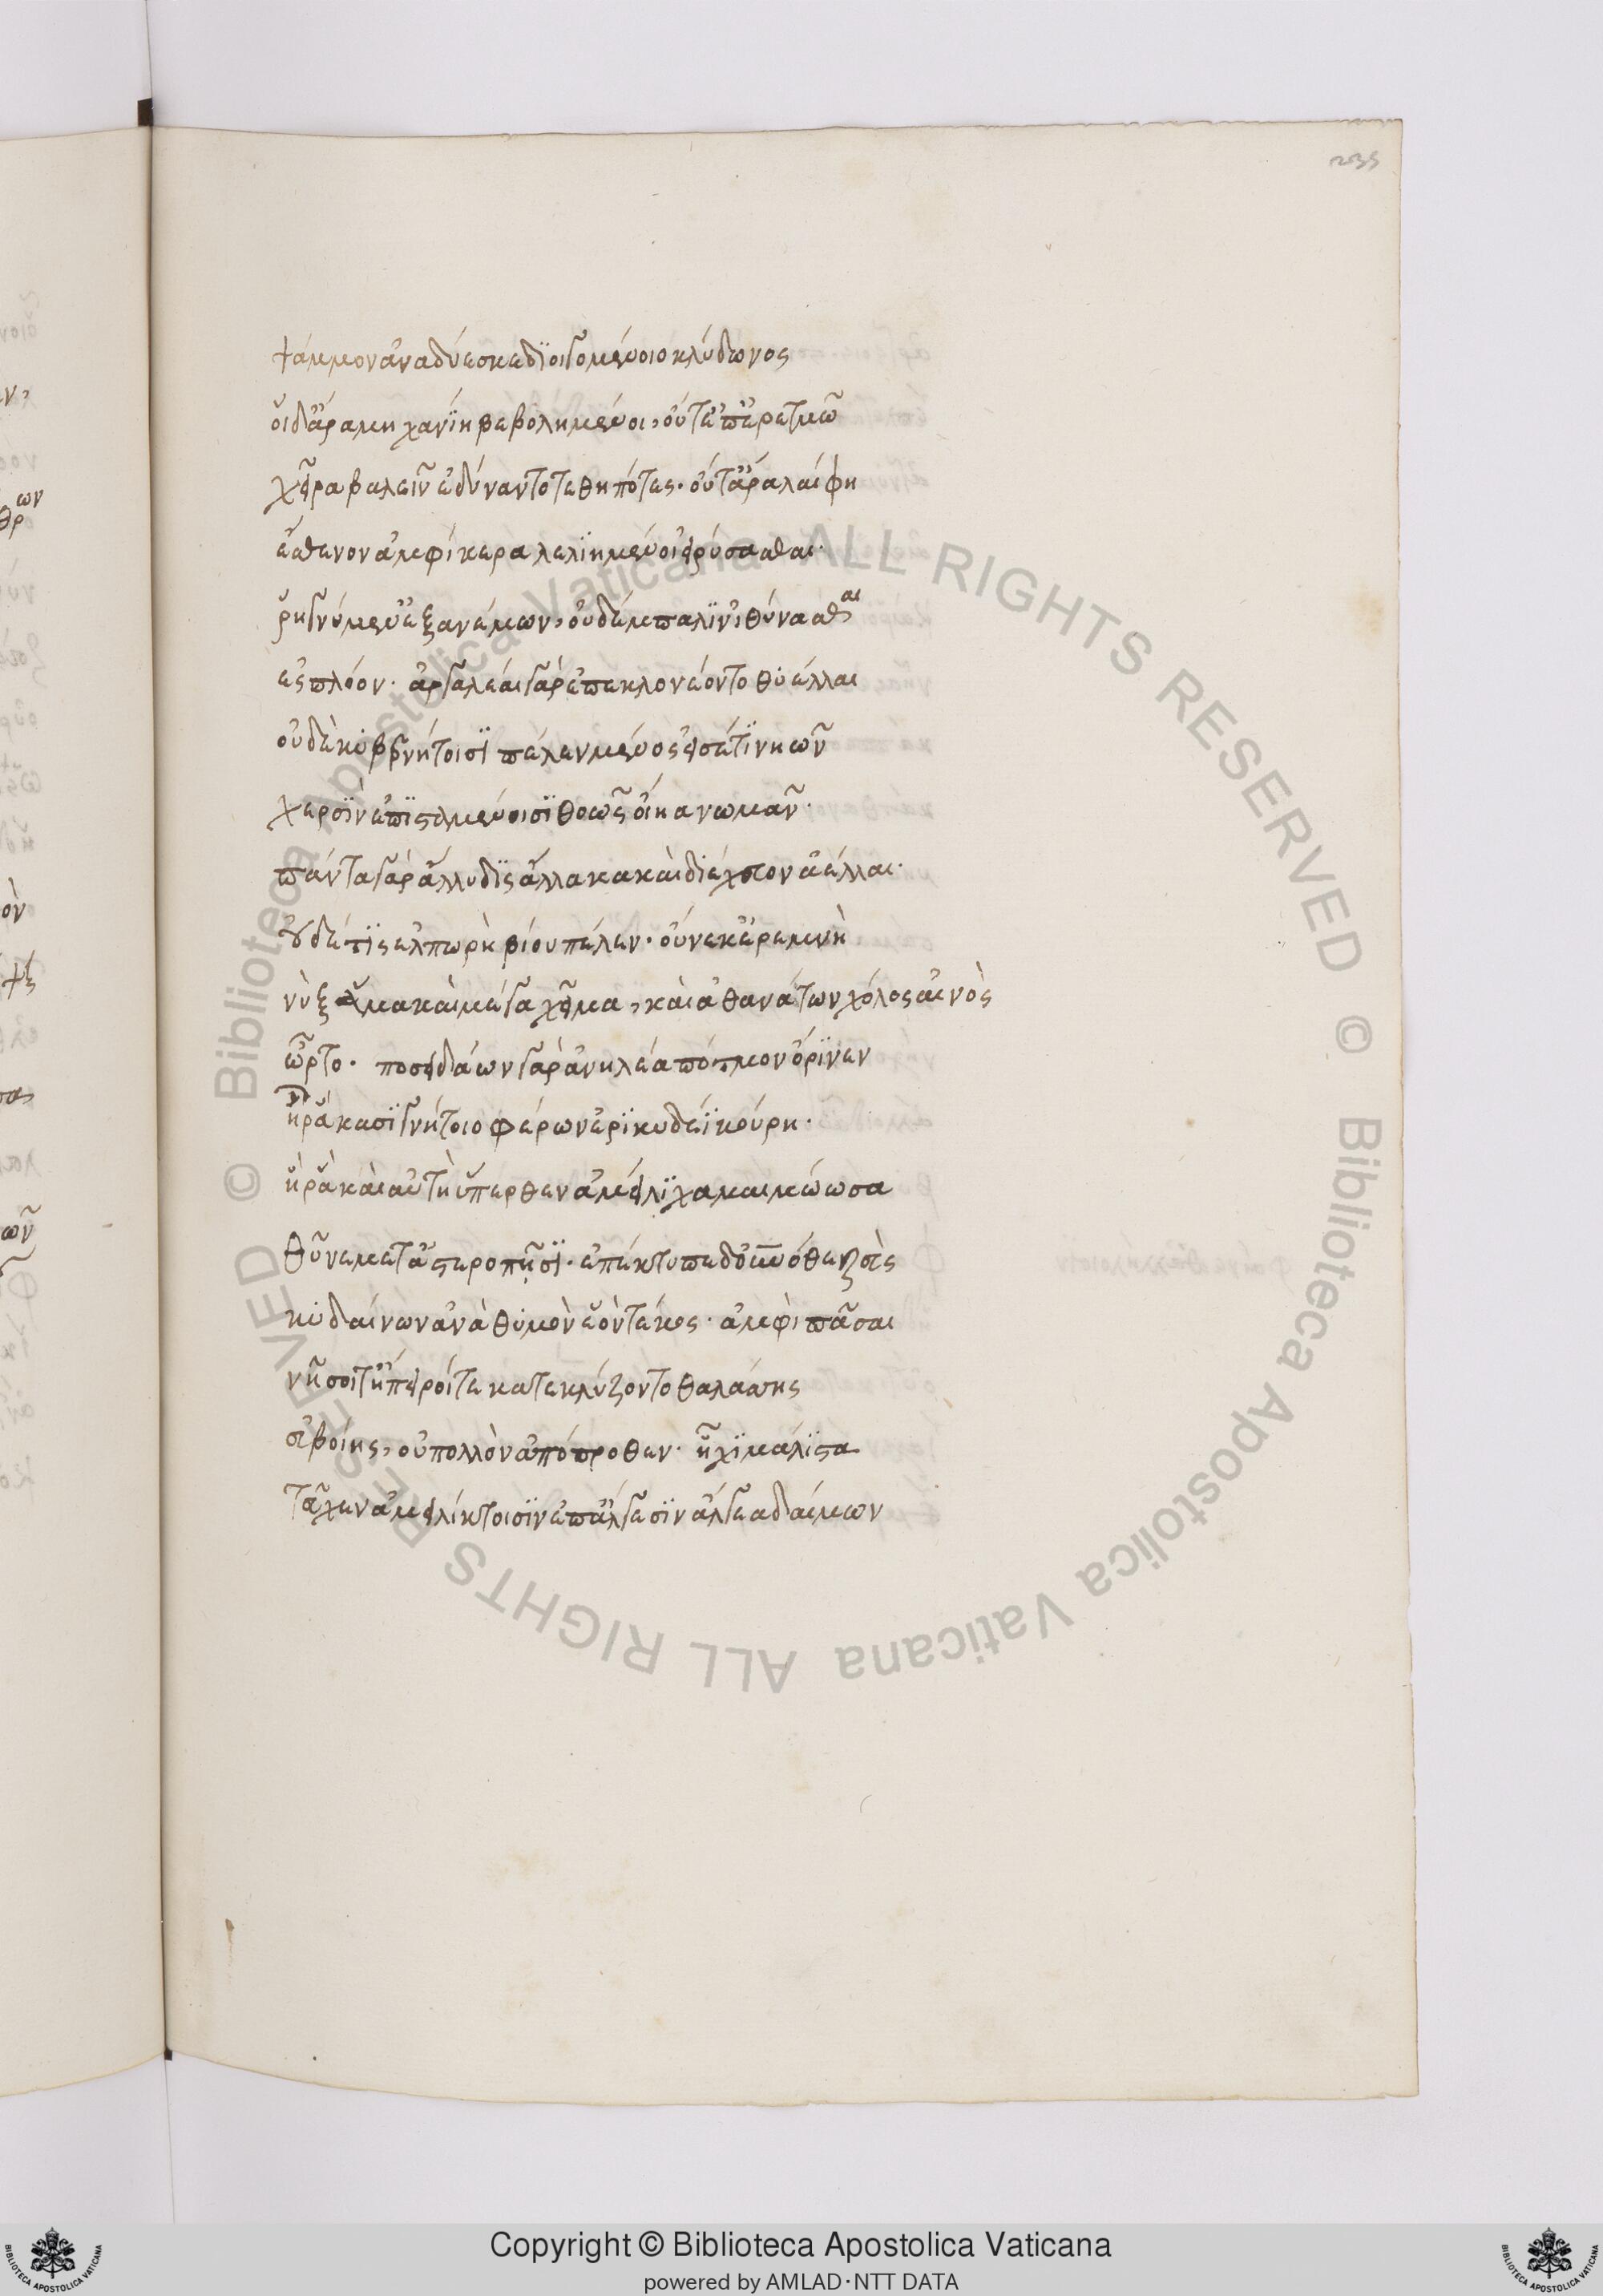 235
ψάμμον ἀναδύεσκε διοιγομένοιο κλύδωνος
οἱ δ' ἄρ ἀμηχανίη βεβολημένοι, οὔτ' ἐπ' ἐρετμῶ
χεῖρα βαλεῖν ἐδύναντο τεθηπότες· οὔτ' ἄρα λαίφη
ἔσθενον ἀμφὶ κέρα λελιημένοι εἰρύσασθαι·
ῥηγνύμεν' ἐξ ἀνέμων, οὐδ' ἔμπαλιν ἰθύνασθαι
ἐς πλόον· ἀργαλέαι γὰρ ἐπεκλονέοντο θύελλαι
οὐδὲ κυβερνήτοισι πέλεν μένος εἰσέτι νηῶν
χερσὶν ἐπισταμένοισι θοῶς οἰήια νωμᾶν·
πάντα γὰρ ἄλλυδις ἄλλα κακαὶ διέχευον ἄελλαι·
οὐδέ τις ἐλπωρὴ βιότου πέλεν· οὕνεκ' ἐρεμνὴ
νὺξ ἅμα καὶ μέγα χεῖμα, καὶ ἀθανάτων χόλος αἰνὸς
ὦρτο· ποσειδάων γὰρ ἀνηλέα πόντον ὄρινεν
ἦρα κασιγνήτοιο φέρων ἐρικυδέϊ κούρη·
ἥ ῥα καὶ αὐτὴ ὕπερθεν ἀμείλιχα μαιμώωσα
θῦνε μετ' ἀστεροπῆσι· ἐπέκτυπε δ' οὐρανόθεν ζεὺς
κυδαίνων ἀνὰ θυμὸν ἑὸν τέκος· ἀμφὶ πᾶσαι
νῆσοί τ' ἤπειροί τε κατεκλύζοντο θαλάσσης
εὐβοίης, οὐ πολλὸν ἀπόπροθεν· ἧχι μάλιστα
τεῦχεν ἀμειλίκτοισιν ἐπ' ἄλγεσιν ἄλγεα δαίμων
Copyright © Biblioteca Apostolica Vaticana
powered by AMLAD·NTT DATA